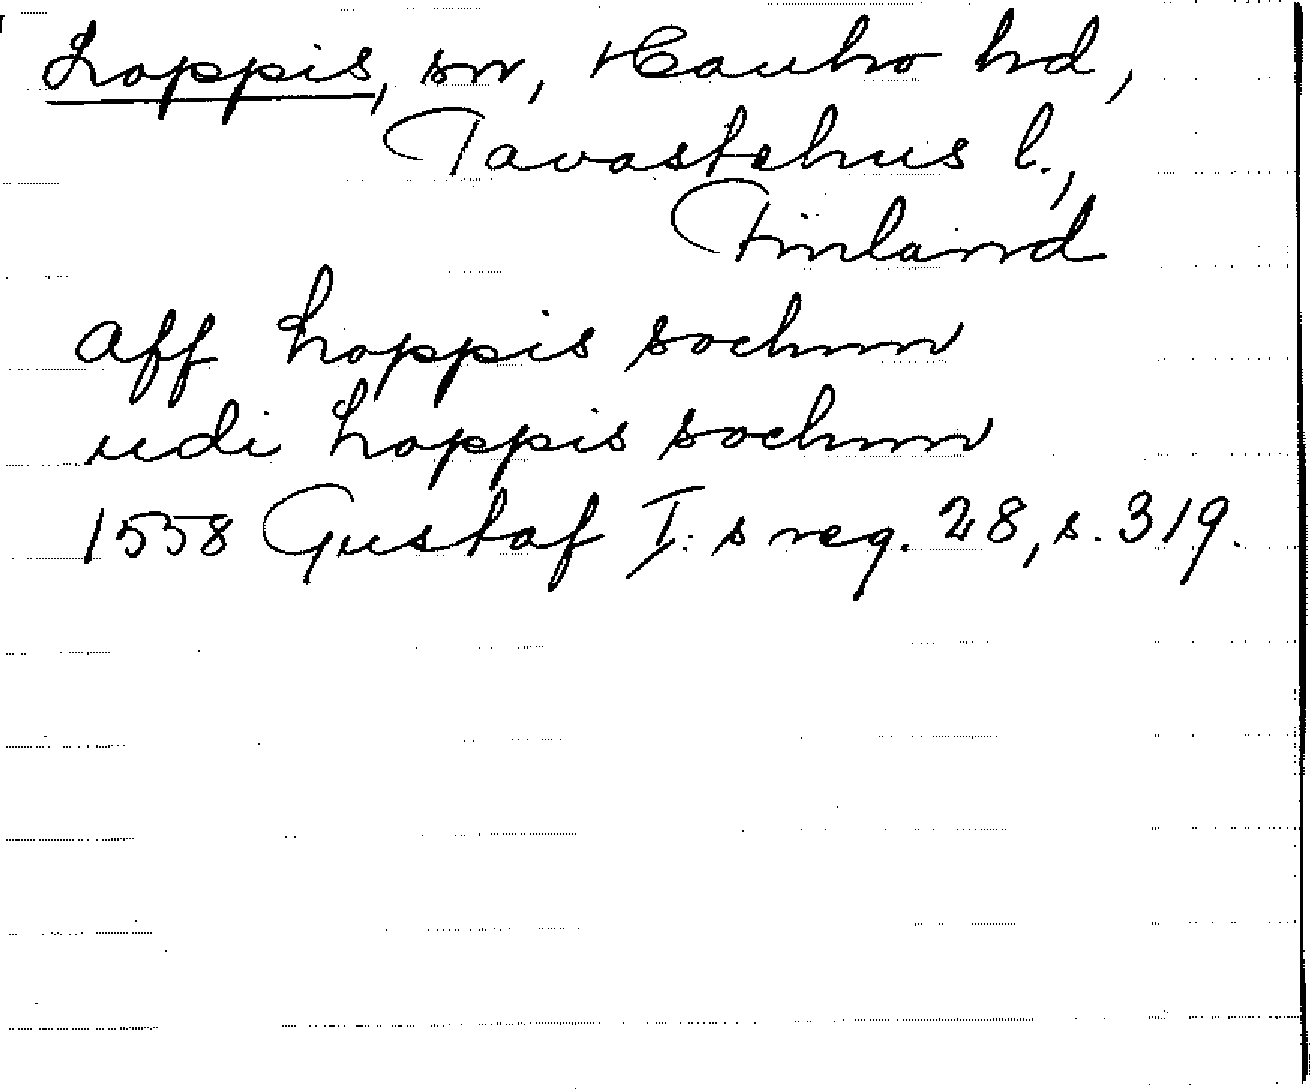 Loppis, sn, Hauho hd,
Tavastehus l.,
Finland
aff Loppis sochnn
udi Loppis sochnn
1558 Gustaf I:s reg. 28, s. 319.